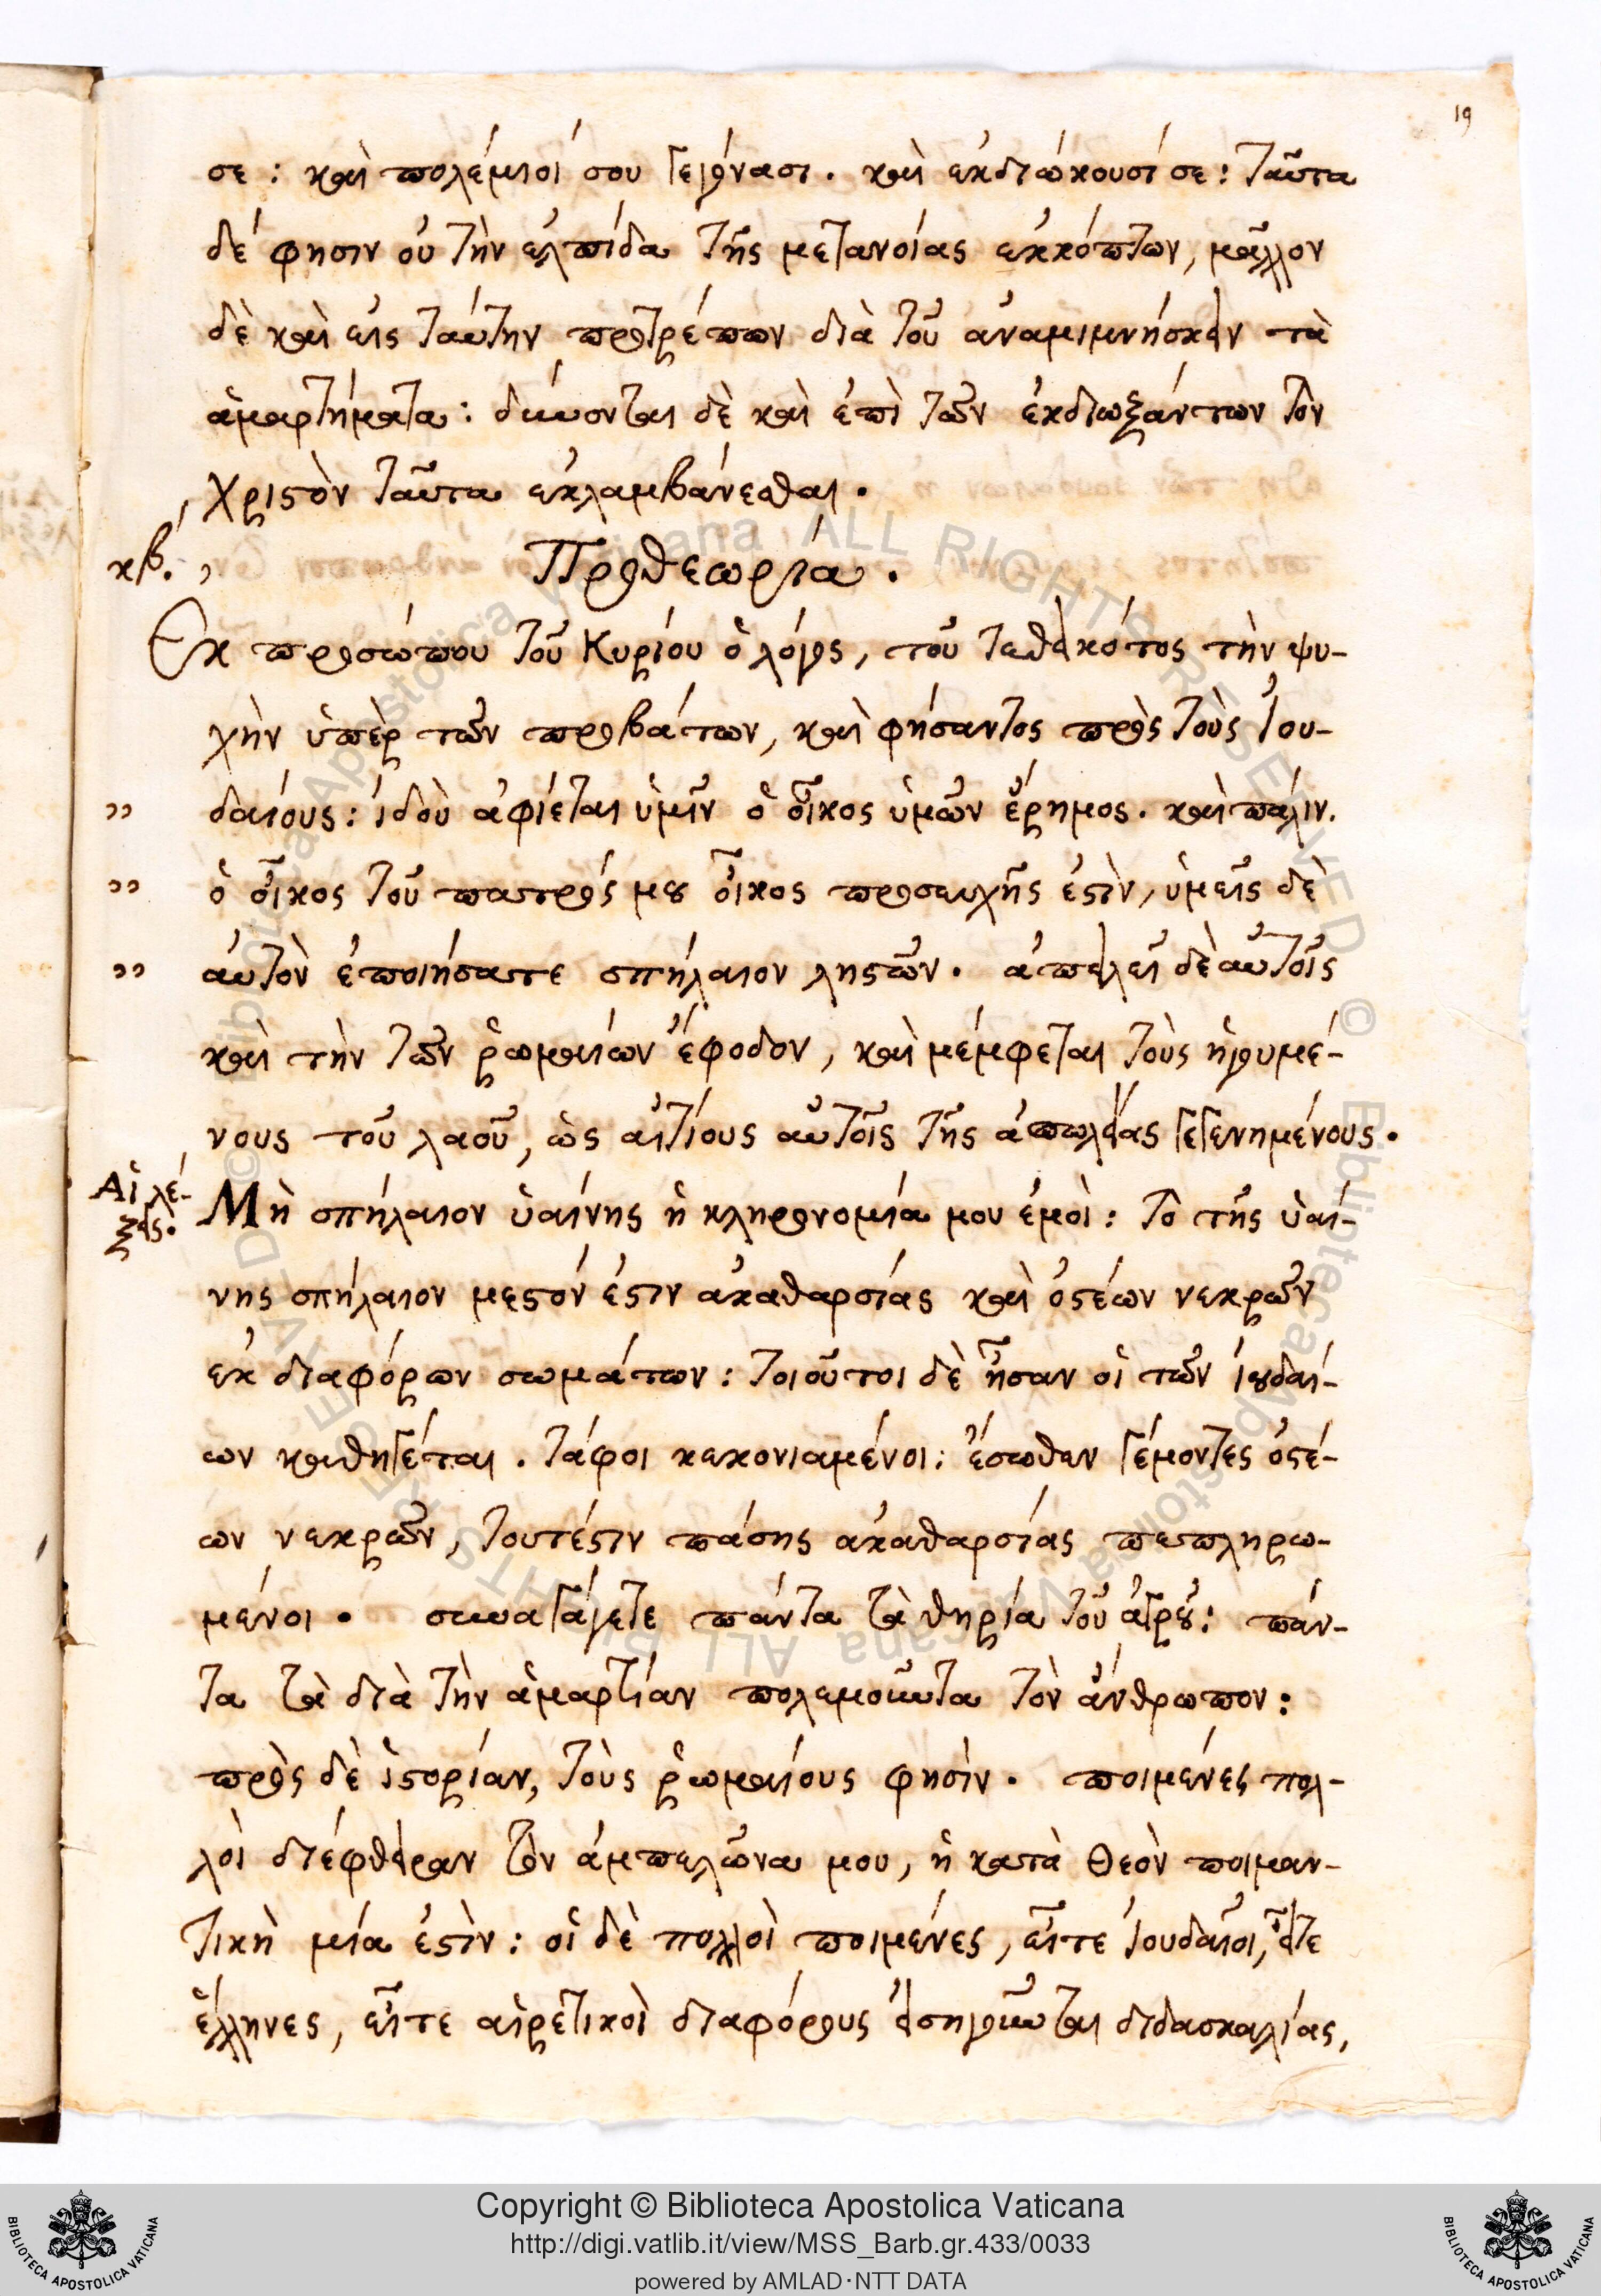 19
σε : καὶ πολέμιοί σου γεγόνασι. καὶ ἐκδιώκουσί σε : ταῦτα
δέ φησιν οὐ τὴν ἐλπίδα τῆς μετανοίας ἐκκόπτων, μᾶλλον
δὲ καὶ εἰς ταύτην προτρέπων διὰ τοῦ ἀναμιμνήσκειν τὰ
ἁμαρτήματα : δύνονται δὲ καὶ ἐπὶ τῶν ἐκδιωξάντων τὸν
Χριστὸν ταῦτα ἐκλαμβάνεσθαι.
κβ΄. Προθεωρία.
Ἐκ προσώπου τοῦ Κυρίου ὁ λόγος, τοῦ τεθεικότος τὴν ψυ-
χὴν ὑπὲρ τῶν προβάτων, καὶ φήσαντος πρὸς τοὺς Ἰου-
" δαίους : ἰδοὺ ἀφίεται ὑμῖν ὁ οἶκος ὑμῶν ἔρημος. καὶ πάλιν.
" ὁ οἶκος τοῦ πατρός μου οἶκος προσευχῆς ἐστὶν, ὑμεῖς δὲ
" αὐτὸν ἐποιήσατε σπήλαιον ληστῶν. ἀπειλεῖ δὲ αὐτοῖς
καὶ τὴν τῶν ῥωμαίων ἔφοδον, καὶ μέμφεται τοὺς ἡγουμέ-
νους τοῦ λαοῦ, ὡς αἰτίους αὐτοῖς τῆς ἀπωλείας γεγενημένους.
Αἱ λέ-
ξεις.
Μὴ σπήλαιον ὑαίνης ἡ κληρονομία μου ἐμοὶ : τὸ τῆς ὑαί-
νης σπήλαιον μεστόν ἐστιν ἀκαθαρσίας καὶ ὀστέων νεκρῶν
ἐκ διαφόρων σωμάτων : τοιοῦτοι δὲ ἦσαν οἱ τῶν ἰουδαί-
ων καθηγέται. τάφοι κεκονιαμένοι : ἔσωθεν γέμοντες ὀστέ-
ων νεκρῶν, τουτέστιν πάσης ἀκαθαρσίας πεπληρω-
μένοι. συναγάγετε πάντα τὰ θηρία τοῦ ἀγροῦ : πάν-
τα τὰ διὰ τὴν ἁμαρτίαν πολεμοῦντα τὸν ἄνθρωπον :
πρὸς δὲ ἱστορίαν, τοὺς ῥωμαίους φησὶν. ποιμένες πολ-
λοὶ διέφθειραν τὸν ἀμπελῶνα μου, ἡ κατὰ Θεὸν ποιμαν-
τικὴ μία ἐστὶν : οἱ δὲ πολλοὶ ποιμένες, εἴτε Ἰουδαῖοι, εἴτε
ἕλληνες, εἴτε αἱρετικοὶ διαφόρους εἰσηγοῦνται διδασκαλίας,
Copyright © Biblioteca Apostolica Vaticana
http://digi.vatlib.it/view/MSS_Barb.gr.433/0033
powered by AMLAD·NTT DATA
BIBLIOTECA APOSTOLICA VATICANA
BIBLIOTECA APOSTOLICA VATICANA